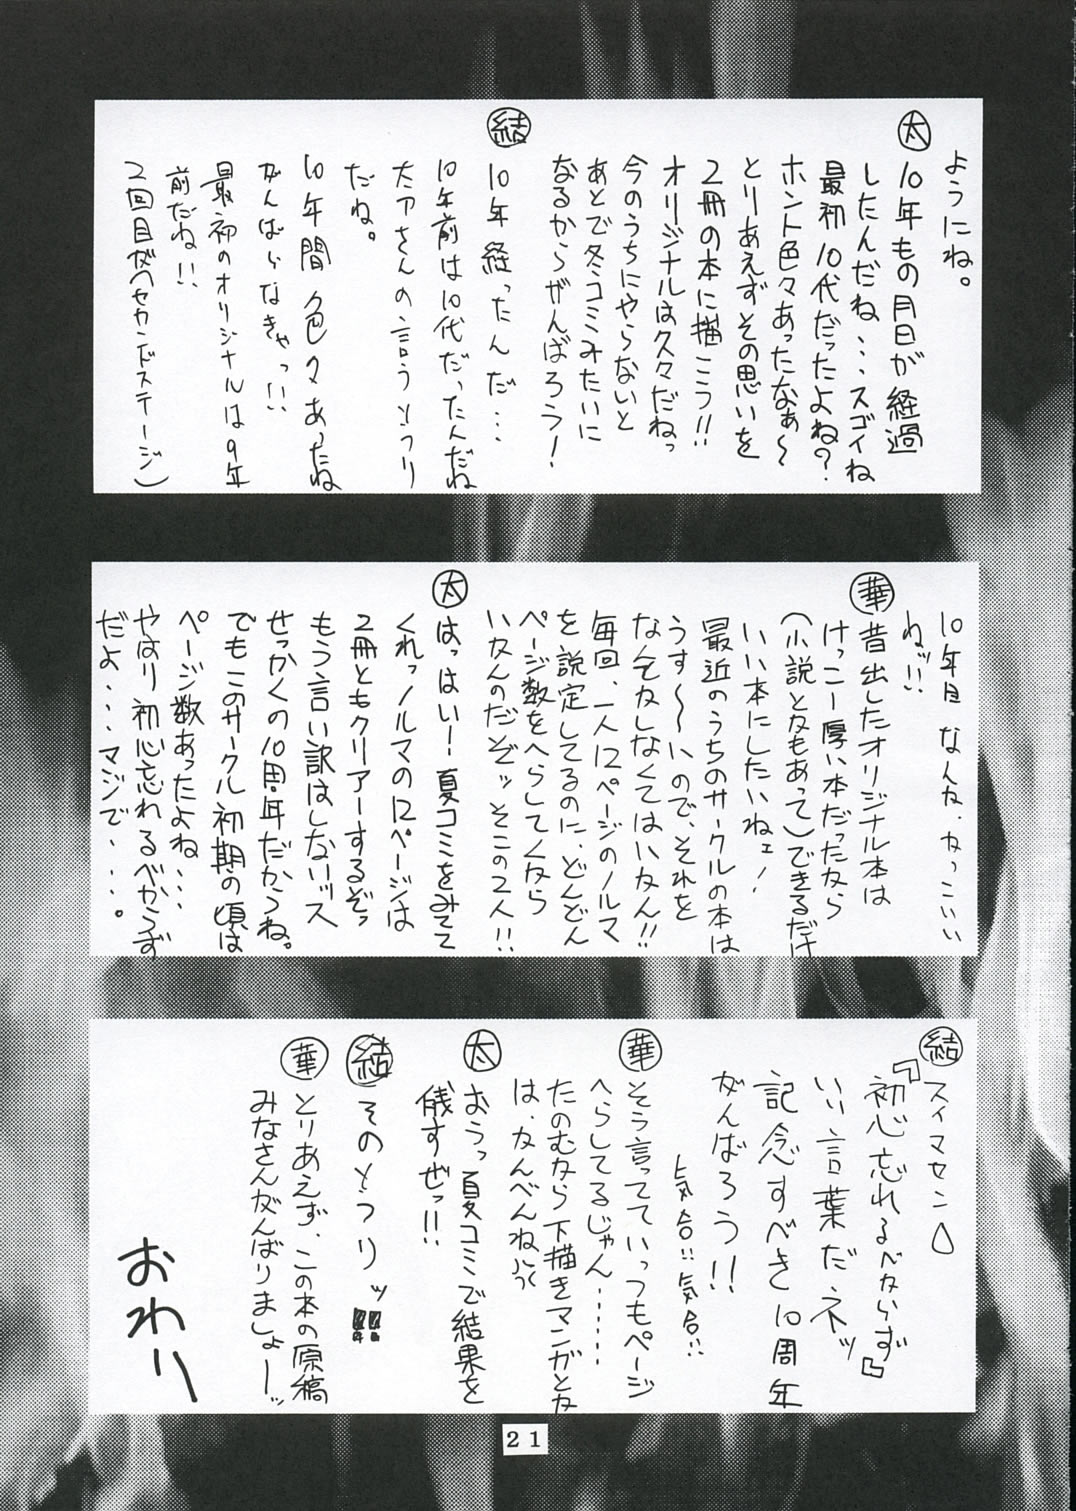 ようにね。
太
10年もの月日が経過
したんだね・・・スゴイね
最初10代だったよね?
ホント色々あったなぁ〜
とりあえずその思いを
2冊の本に描こう!!
オリジナルは久々だねっ
今のうちにやらないと
あとで冬コミみたいに
なるからがんばろう!
結
10年経ったんだ・・・
10年前は10代だったんだね
太アさんの言うとうり
だね。
10年間色々あったね
がんばらなきゃっ!!
最初のオリジナルは9年
前だね!!
2回目が(セカンドステージ)
10年目なんか、かっこいい
ねッ!!
華
昔出したオリジナル本は
けっこー厚い本だったなら
(小説とかもあって)できるだけ
いい本にしたいねェ!
最近のうちのサークルの本は
うす〜〜いので、それを
なんとかしなくてはいかん!!
毎回、一人12ページのノルマ
を説定してるのに、どんどん
ページ数をへらしてくなら
いかんのだぞッそこの2人!!
太
はっはい!夏コミをみてて
くれっノルマの12ページは
2冊ともクリアーするぞっ
もう言い訳はしないッス
せっかくの10周年だからね。
でもこのサークル初期の頃は
ページ数あったよね・・・
やはり初心忘れるべからず
だよ・・・マジで・・・。
結
スイマセン
『初心忘れるべからず』
いい言葉だネッ
記念すべき10周年
がんばろう!!
気合!!気合!!
華
そう言ってていっつもページ
へらしてるじゃん・・・・・・
たのむなら下描きマンガとか
は、かんべんね
太
おうっ夏コミで結果を
残すぜっ!!
結
そのとうりッ!!
華
とりあえず、この本の原稿
みなさんがんばりましょーッ
おわり
21